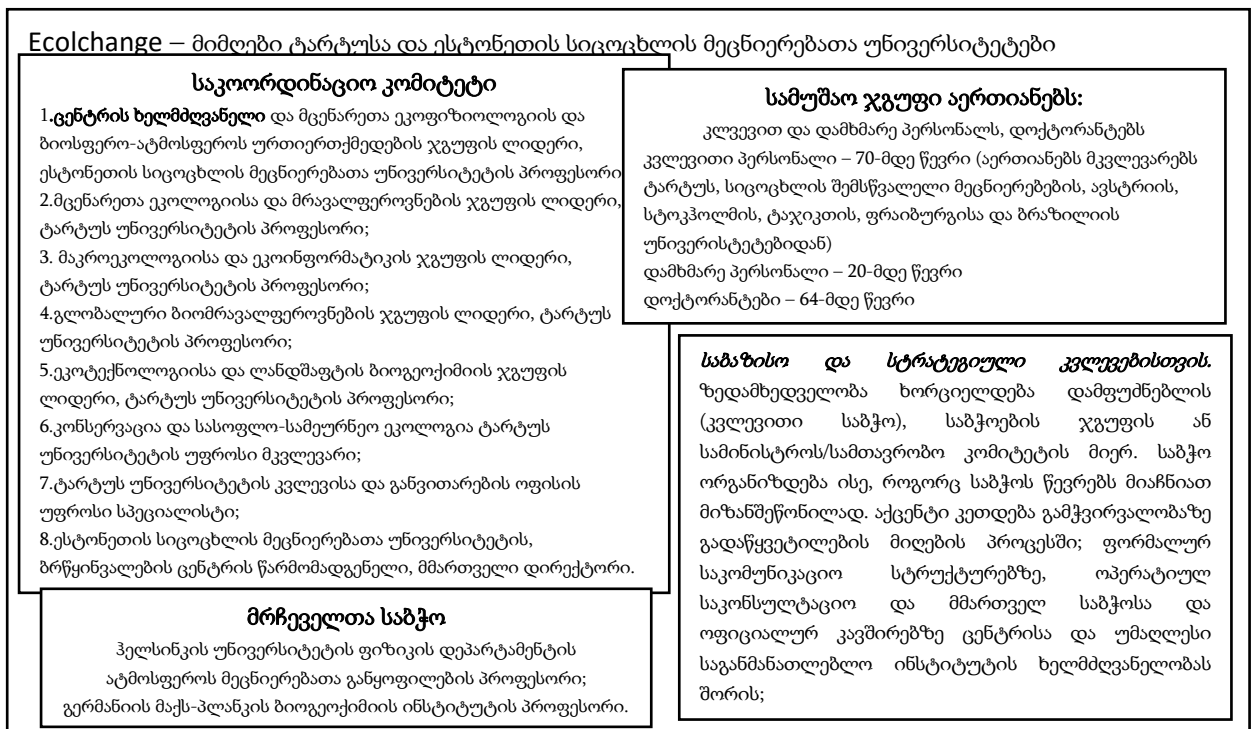 Ecolchange – მიმღები ტარტუსა და ესტონეთის სიცოცხლის მეცნიერებათა უნივერსიტეტები
საკოორდინაციო კომიტეტი
1.ცენტრის ხელმძღვანელი და მცენარეთა ეკოფიზიოლოგიის და
ბიოსფერო-ატმოსფეროს ურთიერთქმედების ჯგუფის ლიდერი,
ესტონეთის სიცოცხლის მეცნიერებათა უნივერსიტეტის პროფესორი
2.მცენარეთა ეკოლოგიისა და მრავალფეროვნების ჯგუფის ლიდერი,
ტარტუს უნივერსიტეტის პროფესორი;
3. მაკროეკოლოგიისა და ეკოინფორმატიკის ჯგუფის ლიდერი,
ტარტუს უნივერსიტეტის პროფესორი;
4.გლობალური ბიომრავალფეროვნების ჯგუფის ლიდერი, ტარტუს
უნივერსიტეტის პროფესორი;
5.ეკოტექნოლოგიისა და ლანდშაფტის ბიოგეოქიმიის ჯგუფის
ლიდერი, ტარტუს უნივერსიტეტის პროფესორი;
6.კონსერვაცია და სასოფლო-სამეურნეო ეკოლოგია ტარტუს
უნივერსიტეტის უფროსი მკვლევარი;
7.ტარტუს უნივერსიტეტის კვლევისა და განვითარების ოფისის
უფროსი სპეციალისტი;
8.ესტონეთის სიცოცხლის მეცნიერებათა უნივერსიტეტის,
ბრწყინვალების ცენტრის წარმომადგენელი, მმართველი დირექტორი.
მრჩეველთა საბჭო
ჰელსინკის უნივერსიტეტის ფიზიკის დეპარტამენტის
ატმოსფეროს მეცნიერებათა განყოფილების პროფესორი;
გერმანიის მაქს-პლანკის ბიოგეოქიმიის ინსტიტუტის პროფესორი.
სამუშაო ჯგუფი აერთიანებს:
კლვევით და დამხმარე პერსონალს, დოქტორანტებს
კვლევითი პერსონალი – 70-მდე წევრი (აერთიანებს მკვლევარებს
ტარტუს, სიცოცხლის შემსწვალელი მეცნიერებების, ავსტრიის,
სტოკჰოლმის, ტაჯიკთის, ფრაიბურგისა და ბრაზილიის
უნივერისტეტებიდან)
დამხმარე პერსონალი – 20-მდე წევრი
დოქტორანტები – 64-მდე წევრი
საბაზისო და სტრატეგიული კვლევებისთვის.
ზედამხედველობა ხორციელდება დამფუძნებლის
(კვლევითი საბჭო), საბჭოების ჯგუფის ან
სამინისტროს/სამთავრობო კომიტეტის მიერ. საბჭო
ორგანიზდება ისე, როგორც საბჭოს წევრებს მიაჩნიათ
მიზანშეწონილად. აქცენტი კეთდება გამჭვირვალობაზე
გადაწყვეტილების მიღების პროცესში; ფორმალურ
საკომუნიკაციო სტრუქტურებზე, ოპერატიულ
საკონსულტაციო და მმართველ საბჭოსა და
ოფიციალურ კავშირებზე ცენტრისა და უმაღლესი
საგანმანათლებლო ინსტიტუტის ხელმძღვანელობას
შორის;